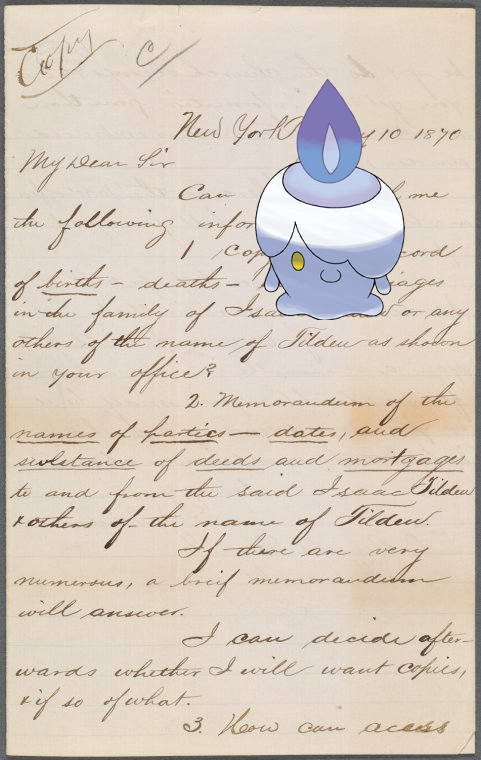 Copy C
New York 10 1870
My Dear Sir
Can me
the following
1
of births - deaths -
in the family of or any
others of the name of Tilden as shown
in your office?
2. Memorandum of the
names of parties - dates, and
substance of deeds and mortgages
to and from the said Isaac Tilden
& others of the name of Tilden.
If these are very
numerous, a brief memorandum
will answer.
I can decide after-
wards whether I will want copies,
& if so of what.
3. How can access